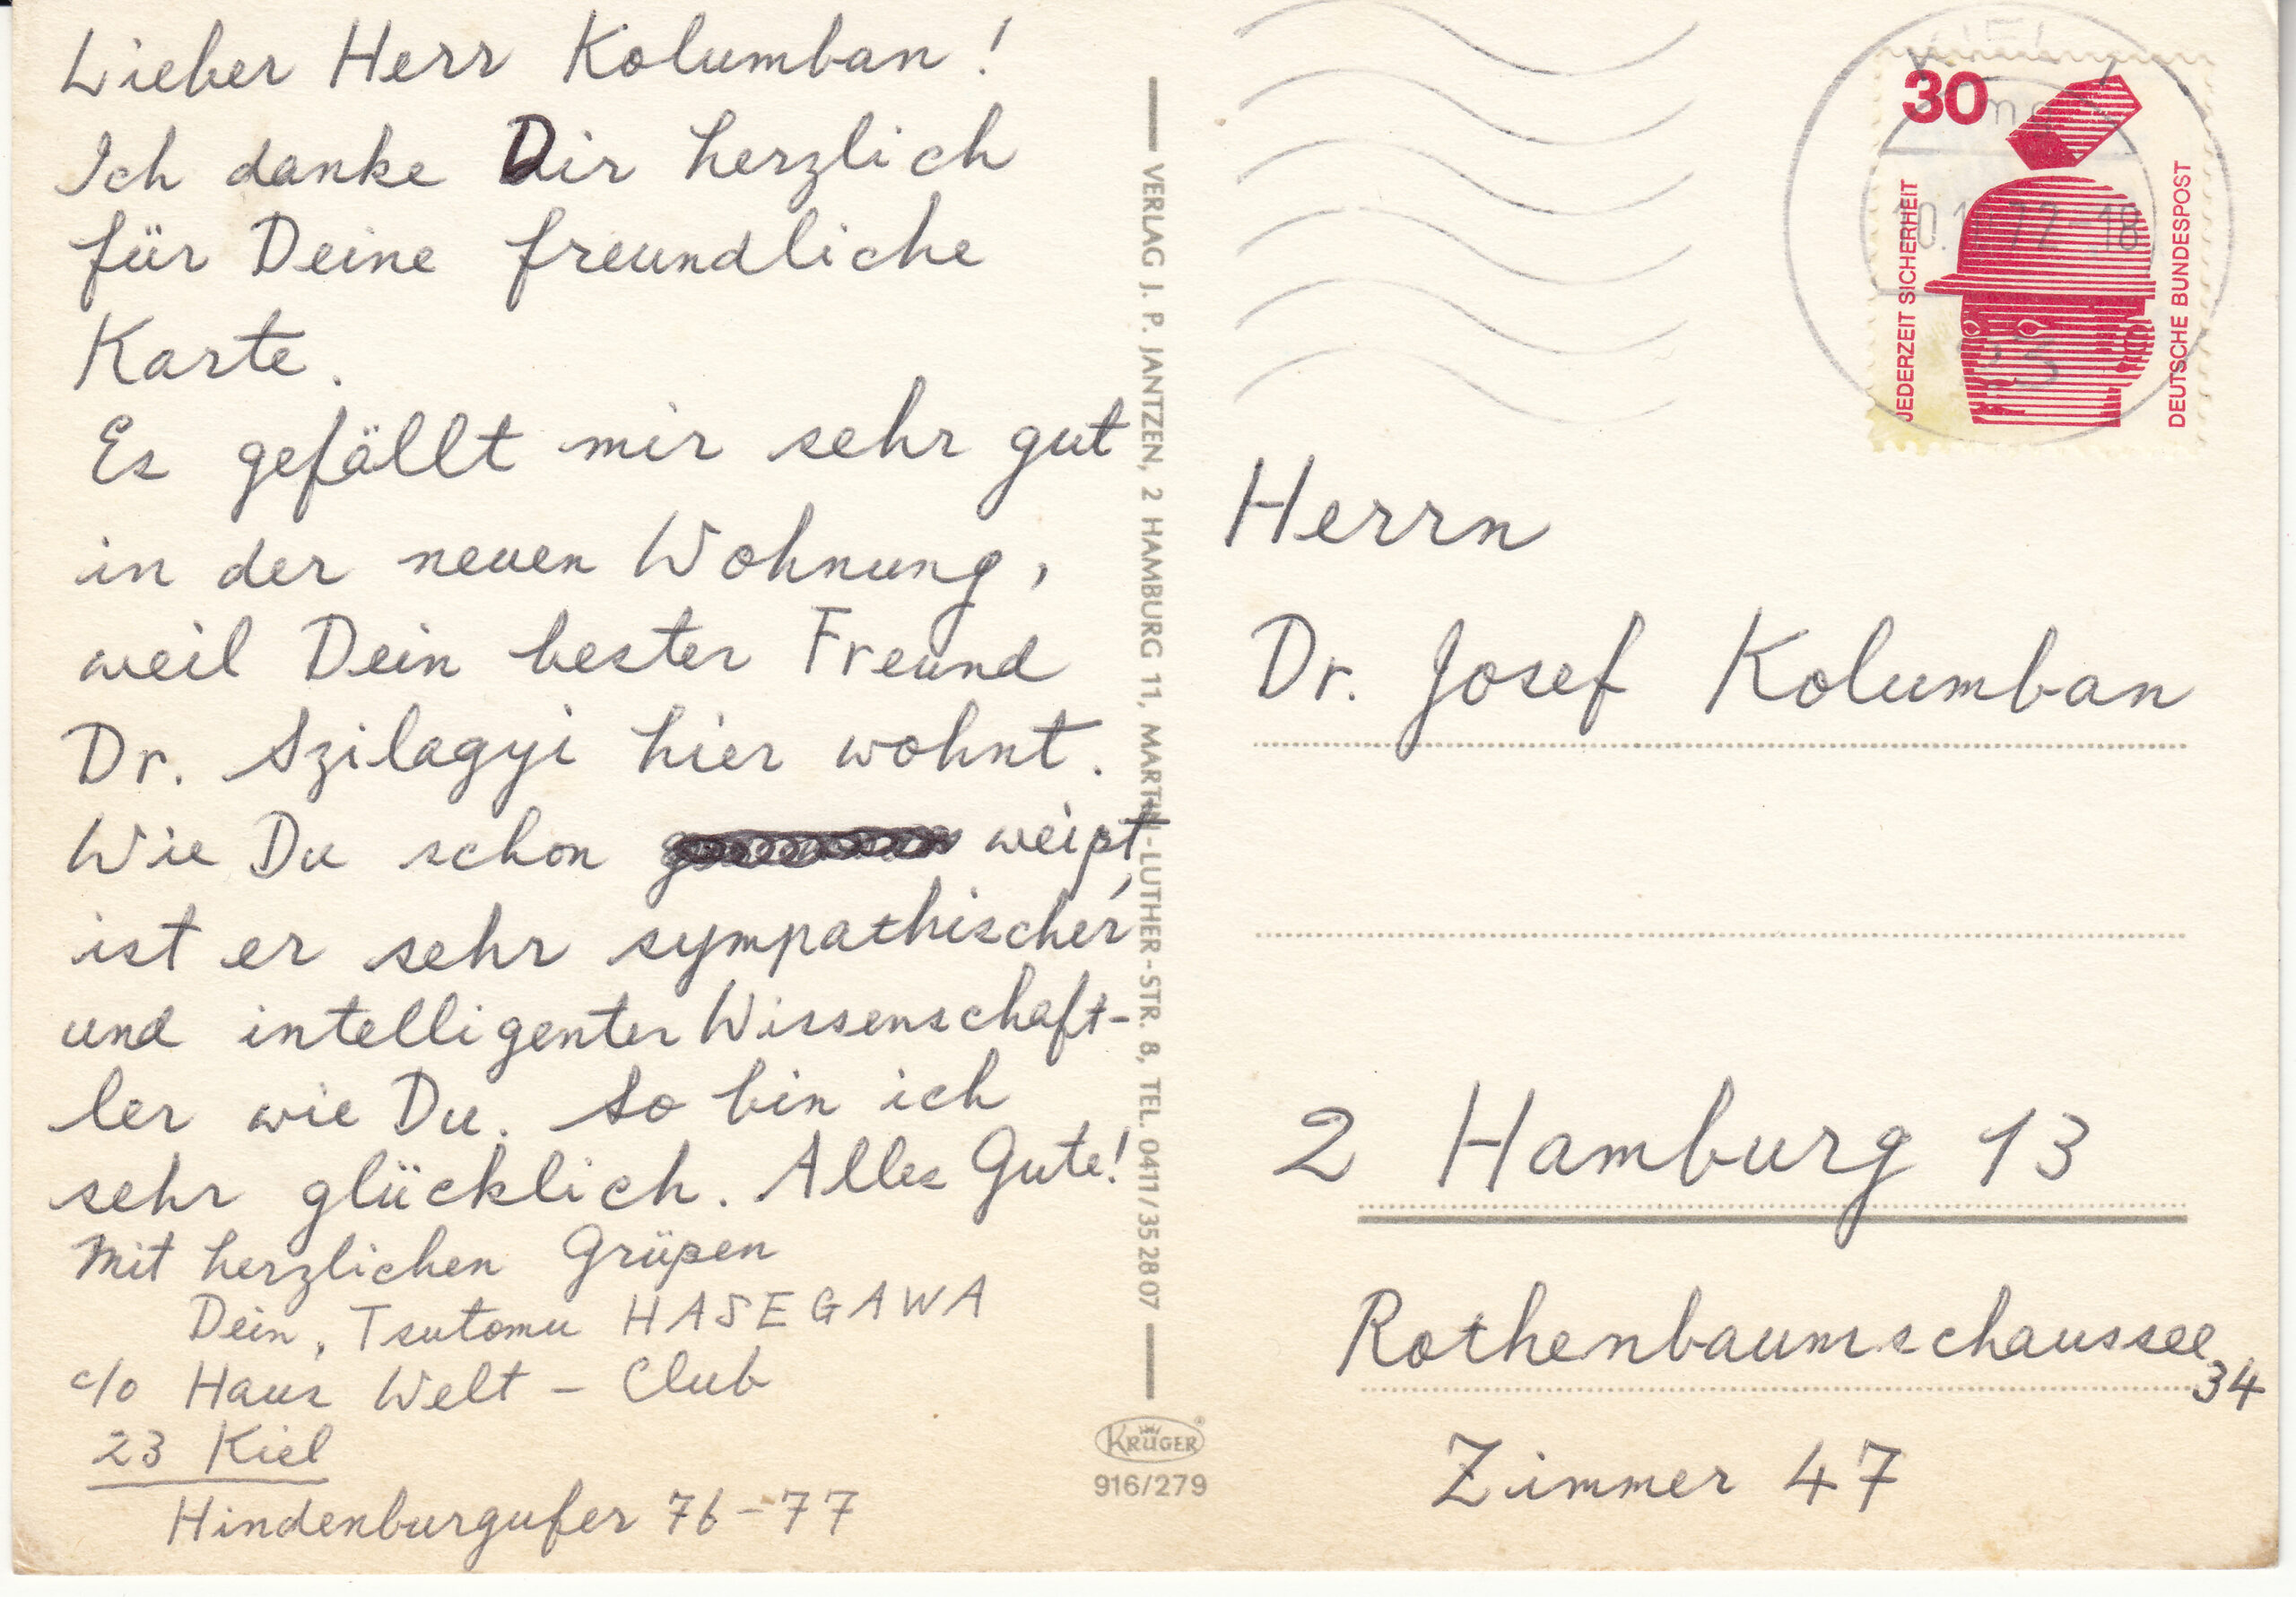 Lieber Herr Kolumban!
Ich danke Dir herzlich
für Deine freundliche
Karte.
Es gefällt mir sehr gut
in der neuen Wohnung,
weil Dein bester Freund
Dr. Szilagyi hier wohnt.
Wie Du schon weißt,
ist er sehr sympathischer
und intelligenter Wissenschaft-
ler wie Du. So bin ich
sehr glücklich. Alles Gute!
Mit herzlichen Grüßen
Dein, Tsutomu HASEGAWA
c/o Haus Welt-Club
23 Kiel
Hindenburgufer 76-77
VERLAG J. P. JANTZEN, 2 HAMBURG 11, MARTIN-LUTHER-STR. 8, TEL. 0411/352807
KRÜGER®
916/279
30
JEDERZEIT SICHERHEIT
DEUTSCHE BUNDESPOST
Herrn
Dr. Josef Kolumban
2 Hamburg 13
Rothenbaumschaussee
34
Zimmer 47